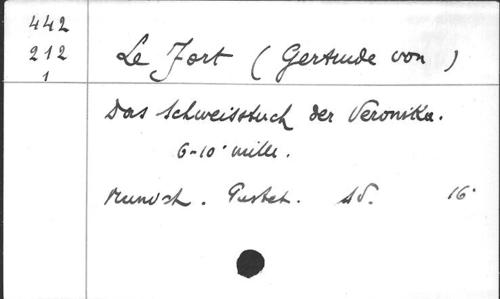 442
212
1
Le Fort (Gertrude von)
Das Schweisstuch der Veronika.
6-10 mille.
Pustet. 16°